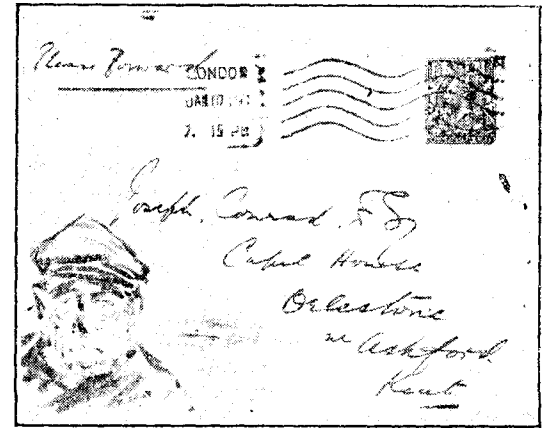 Please Forward
LONDON
7. 15 PM
Joseph Conrad, Esq
Capel House
Orlestone
nr Ashford
Kent